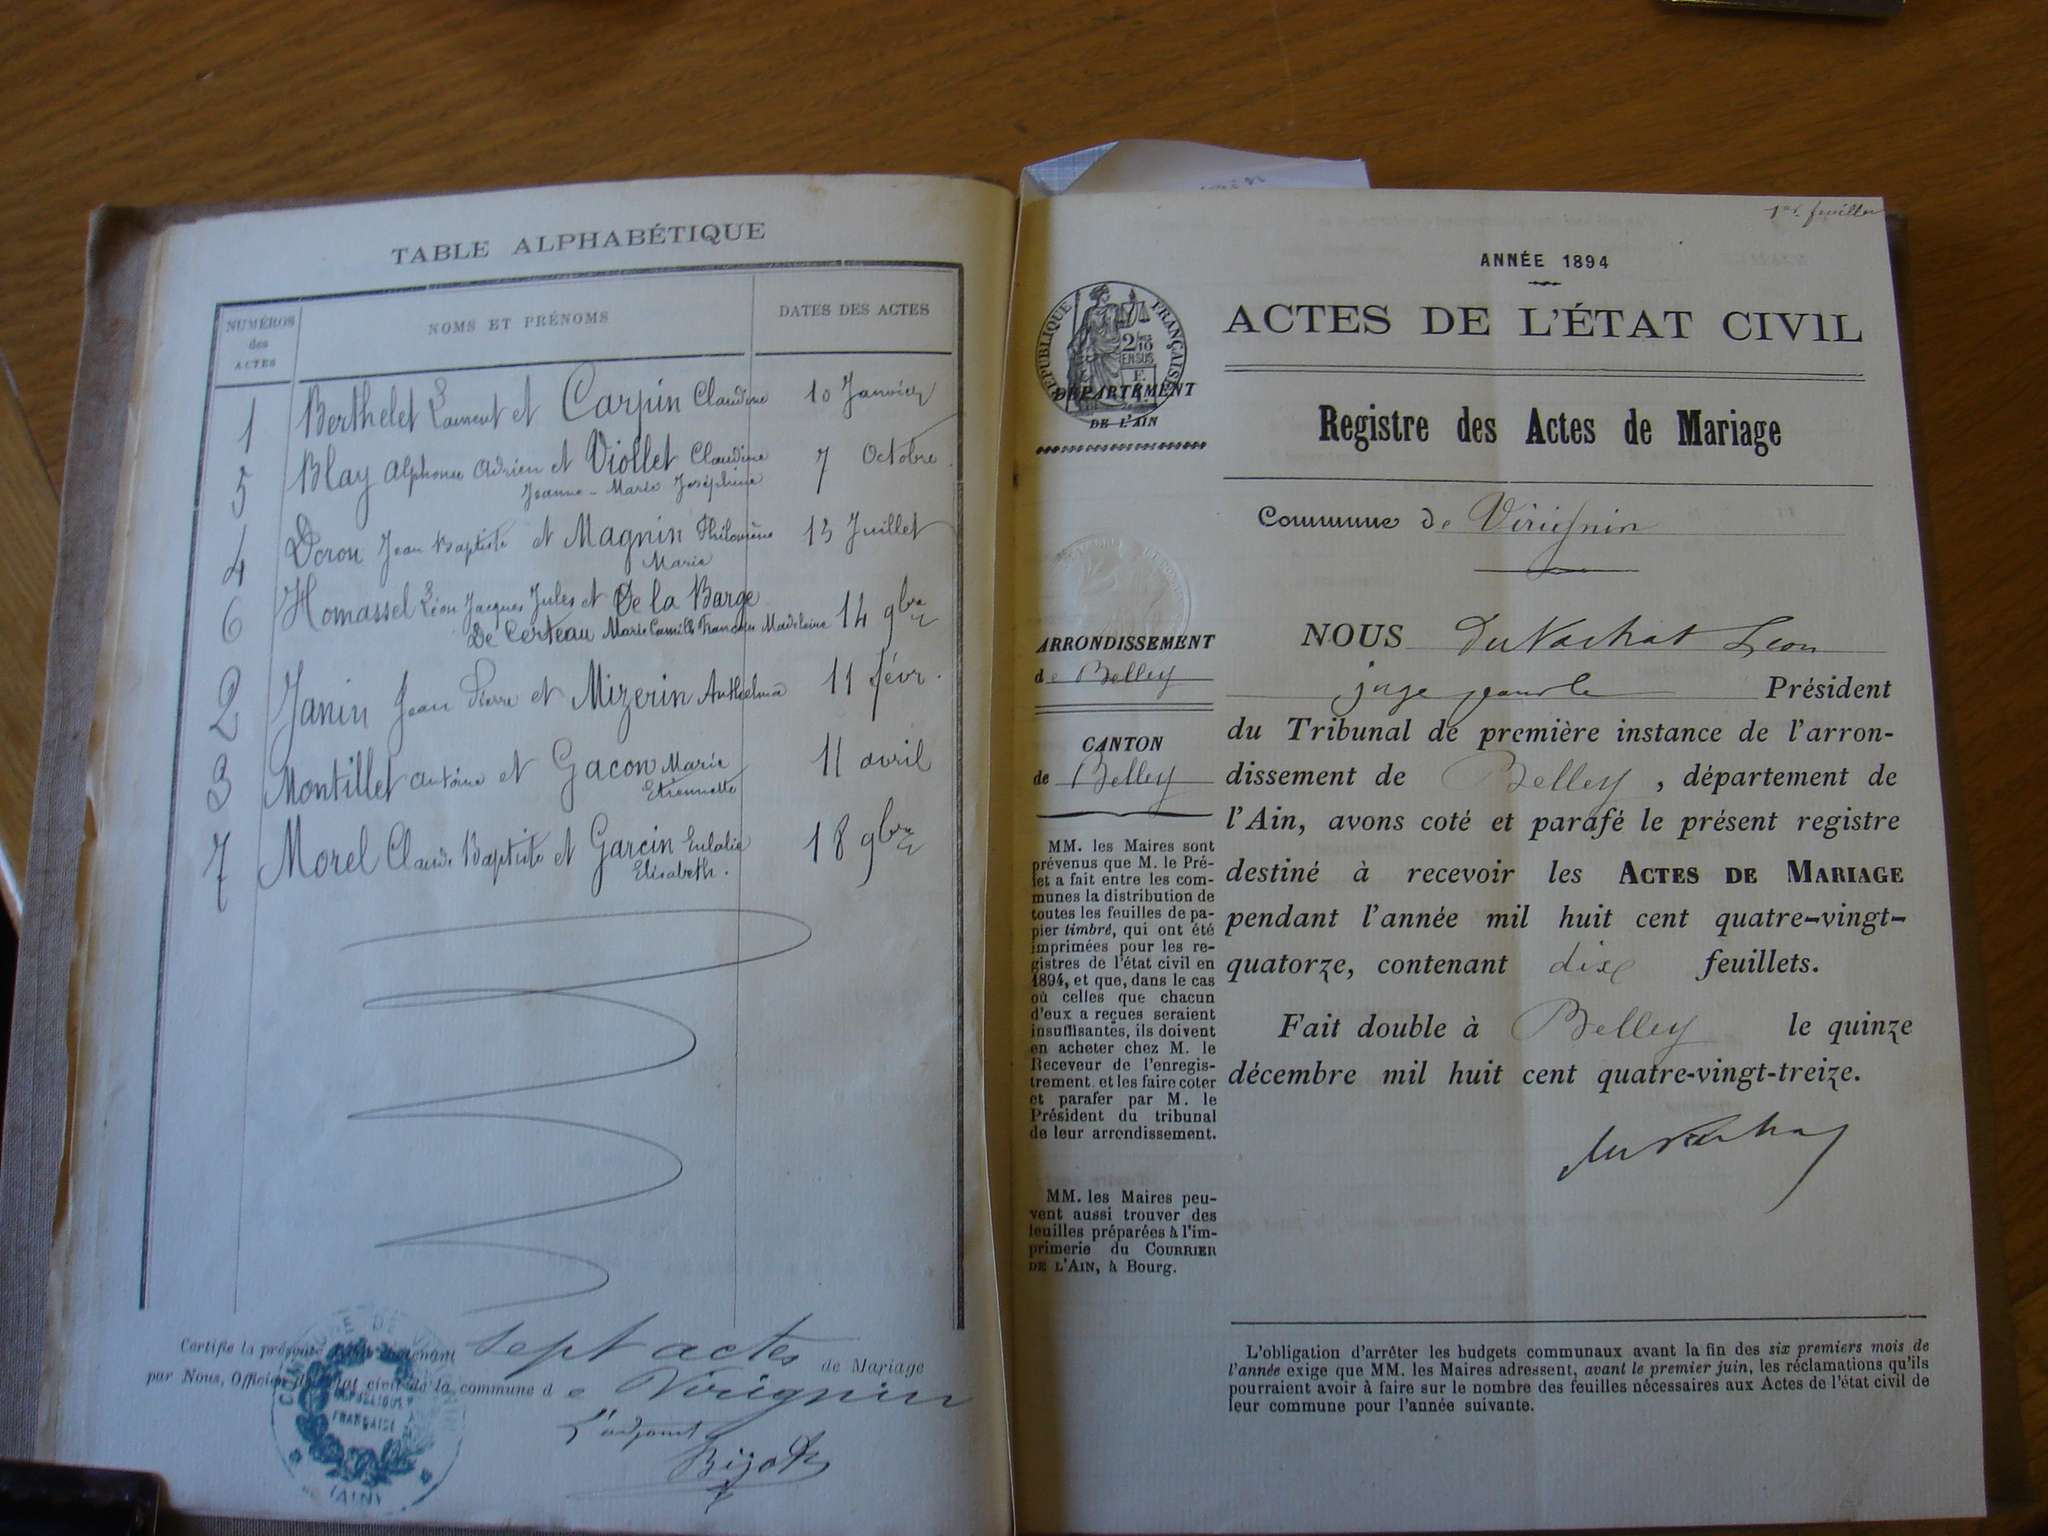 TABLE ALPHABÉTIQUE
NUMÉROS des ACTES
NOMS ET PRÉNOMS
DATES DES ACTES
1 Berthelet Laurent et Carpin Claudine 10 Janvier
5 Blay Alphonse Adrien et Viollet Claudine 7 Octobre
Jeanne-Marie Joséphine
4 Doron Jean Baptiste et Magnin Philomène 13 Juillet
Marie
6 Homassel Léon Jacques Jules et De la Barge
De Certeau Marie Camille Françoise Madeleine 14 9bre
2 Janin Jean Pierre et Mizerin Anthelma 11 févr.
3 Montillet Antoine et Gacon Marie 11 avril
Etiennette
7 Morel Claude Baptiste et Garcin Eulalie 18 9bre
Elisabeth.
Certifie la présente contenant sept actes de Mariage
par Nous, Officier de l'état civil de la commune de Virignin
L'adjoint
COMMUNE DE VIRIGNIN
RÉPUBLIQUE
FRANÇAISE
(AIN)
1er feuillet
ANNÉE 1894
ACTES DE L'ÉTAT CIVIL
RÉPUBLIQUE FRANÇAISE
2/10
EN SUS
DÉPARTEMENT
DE L'AIN
Registre des Actes de Mariage
Commune de Virignin
ARRONDISSEMENT
de Belley
CANTON
de Belley
MM. les Maires sont
prévenus que M. le Pré-
fet a fait entre les com-
munes la distribution de
toutes les feuilles de pa-
pier timbré, qui ont été
imprimées pour les re-
gistres de l'état civil en
1894, et que, dans le cas
où celles que chacun
d'eux a reçues seraient
insuffisantes, ils doivent
en acheter chez M. le
Receveur de l'enregis-
trement et les faire coter
et parafer par M. le
Président du tribunal
de leur arrondissement.
MM. les Maires peu-
vent aussi trouver des
feuilles préparées à l'im-
primerie du COURRIER
DE L'AIN, à Bourg.
NOUS Du Vachat Léon
juge Président
du Tribunal de première instance de l'arron-
dissement de Belley, département de
l'Ain, avons coté et parafé le présent registre
destiné à recevoir les ACTES DE MARIAGE
pendant l'année mil huit cent quatre-vingt-
quatorze, contenant dix feuillets.
Fait double à Belley le quinze
décembre mil huit cent quatre-vingt-treize.
L'obligation d'arrêter les budgets communaux avant la fin des six premiers mois de
l'année exige que MM. les Maires adressent, avant le premier juin, les réclamations qu'ils
pourraient avoir à faire sur le nombre des feuilles nécessaires aux Actes de l'état civil de
leur commune pour l'année suivante.